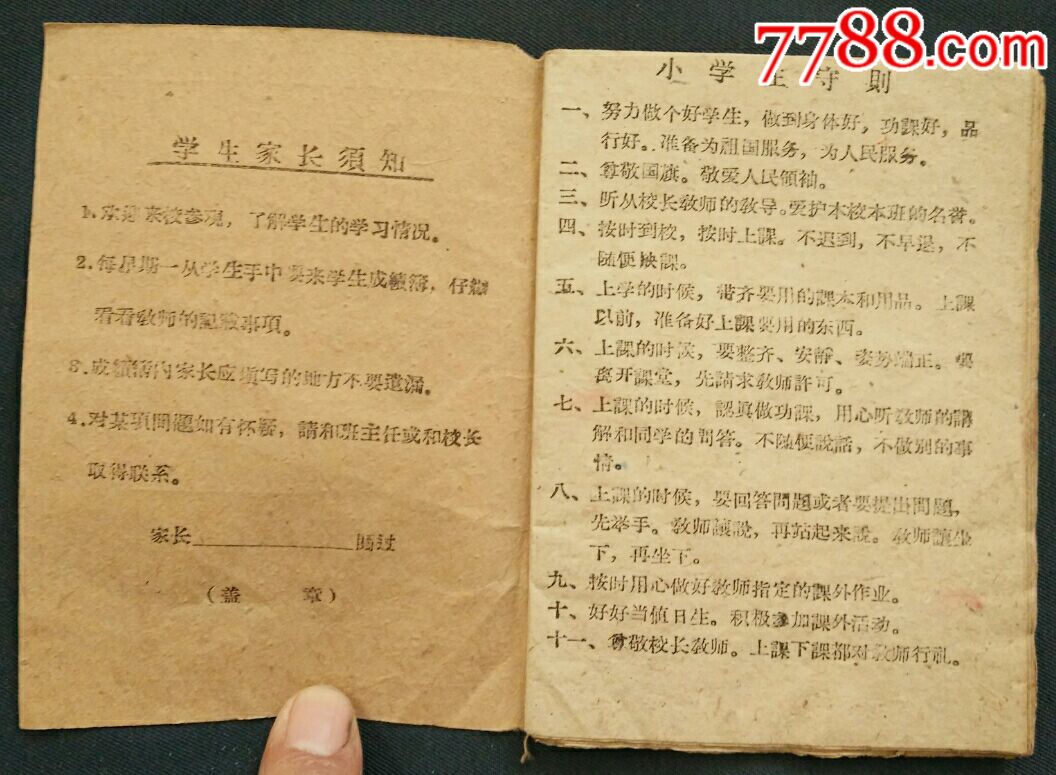 7788.com
学生家长須知
1.欢迎来校参观，了解学生的学习情况。
2.每星期一从学生手中要来学生成績簿，仔細
看看教师的記載事項。
3.成績簿內家长应填写的地方不要遺漏。
4.对某項問題如有怀疑，請和班主任或和校长
取得联系。
家长 閱过
（盖 章）
小学生守則
一、努力做个好学生，做到身体好，功課好，品
行好。准备为祖国服务，为人民服务。
二、尊敬国旗。敬爱人民領袖。
三、听从校长教师的教导。爱护本校本班的名誉。
四、按时到校，按时上課。不迟到，不早退，不
随便缺課。
五、上学的时候，带齐要用的課本和用品。上課
以前，准备好上課要用的东西。
六、上課的时候，要整齐、安靜、姿势端正。要
离开課堂，先請求教师許可。
七、上課的时候，認眞做功課，用心听教师的講
解和同学的問答。不随便說話，不做別的事
情。
八、上課的时候，要回答問題或者要提出問題，
先举手。教师讓說，再站起来說。教师讓坐
下，再坐下。
九、按时用心做好教师指定的課外作业。
十、好好当值日生。积极参加課外活动。
十一、尊敬校长教师。上課下課都对教师行礼。